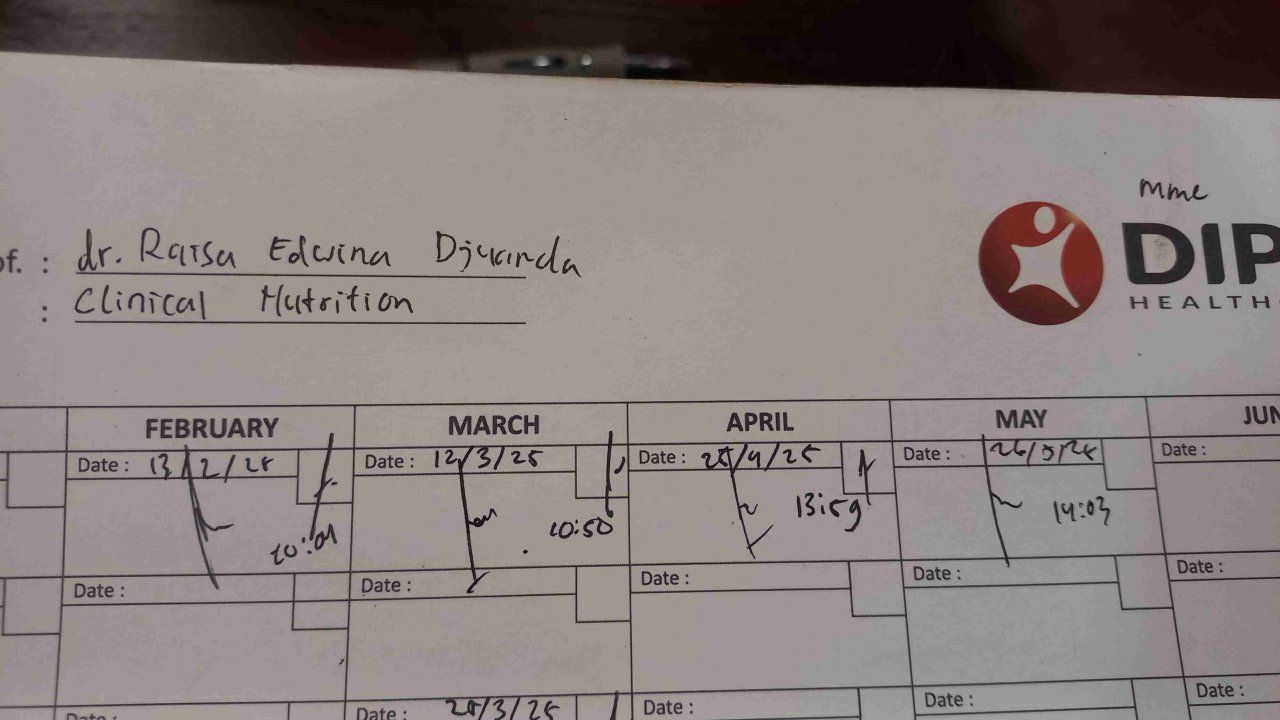 mme
DIP
HEALTH
of. : dr. Raisa Edwina Djuanda
: Clinical Nutrition
FEBRUARY MARCH APRIL MAY JUN
Date : 13/2/25 Date : 12/3/25 Date : 25/4/25 Date : 26/5/25 Date :
10:01 10:50 13:59 14:03
Date : Date : Date : Date : Date :
Date : Date : 25/3/25 Date : Date : Date :